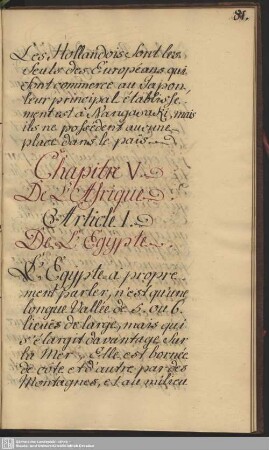 81.
Les Hollandois sont les
seuls des Européans qui
font commerce au Japon,
leur principal établisse
ment est à Nangasacki, mais
ils ne possédent aucune
place dans le païs.
Chapitre V.
De L'Afrique
Article I.
De L'Egypte.
L'Egypte à propre
ment parler, n'est qu'une
longue Vallée de 5. ou 6.
lieües de large, mais qui
s'élargit davantage sur
la Mer. Elle est bornée
de coté et d'autre par des
Montagnes, et au milieu